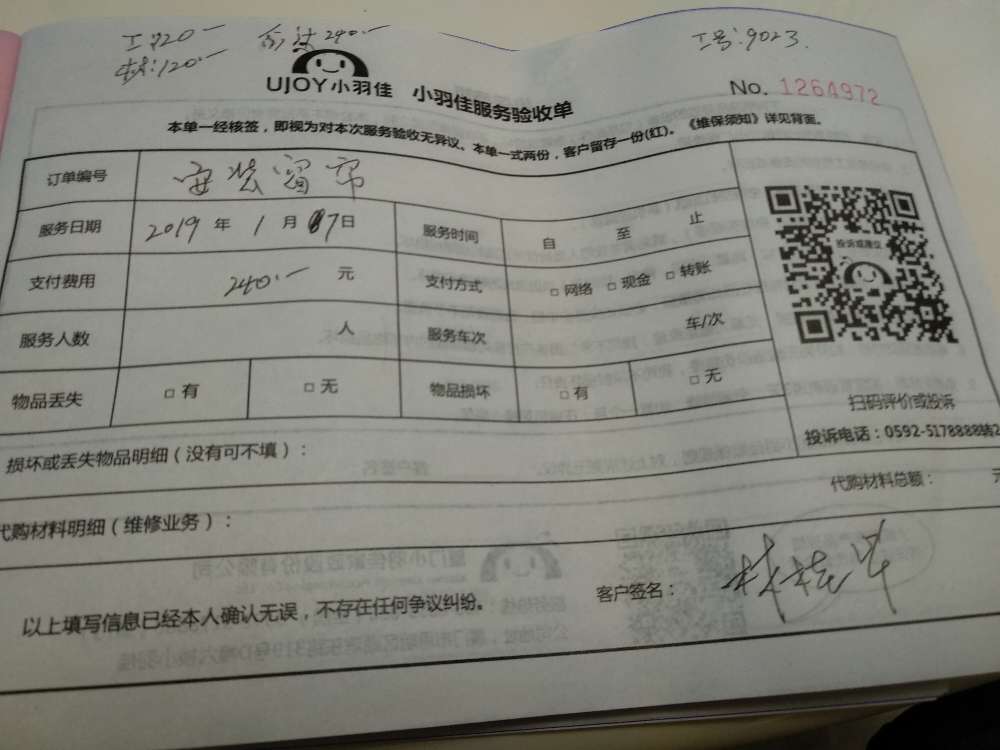 工:120.- 合计240.- 工号:9023.
材:120.-
UJOY小羽佳 小羽佳服务验收单 No. 1264972
本单一经核签，即视为对本次服务验收无异议。本单一式两份，客户留存一份(红)。《维保须知》详见背面。
订单编号 安装窗帘
服务日期 2019 年 1 月 7日 服务时间 自 至 止
投诉或建议
支付费用 240.- 元 支付方式 □ 网络 □ 现金 □ 转账
服务人数 人 服务车次 车/次
物品丢失 □ 有 □ 无 物品损坏 □ 有 □ 无
扫码评价或投诉
投诉电话：0592-5178888转2
损坏或丢失物品明细（没有可不填）：
代购材料明细（维修业务）： 代购材料总额： 元
以上填写信息已经本人确认无误，不存在任何争议纠纷。 客户签名：